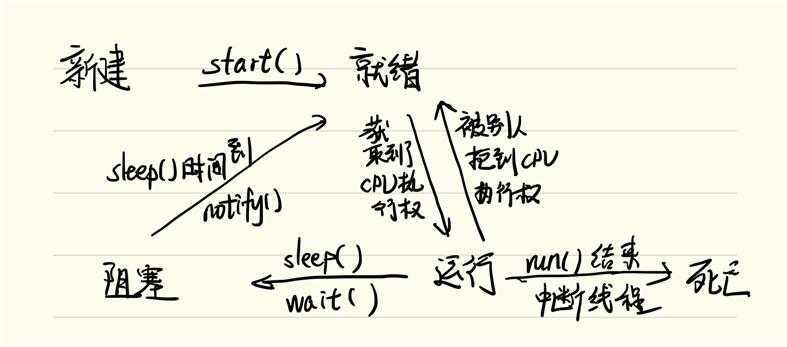 新建 start() 就绪
获
取到了
CPU执
行权
被别人
抢到CPU
执行权
sleep()时间到
notify()
阻塞 sleep() 运行 run()结束 死亡
wait() 中断线程